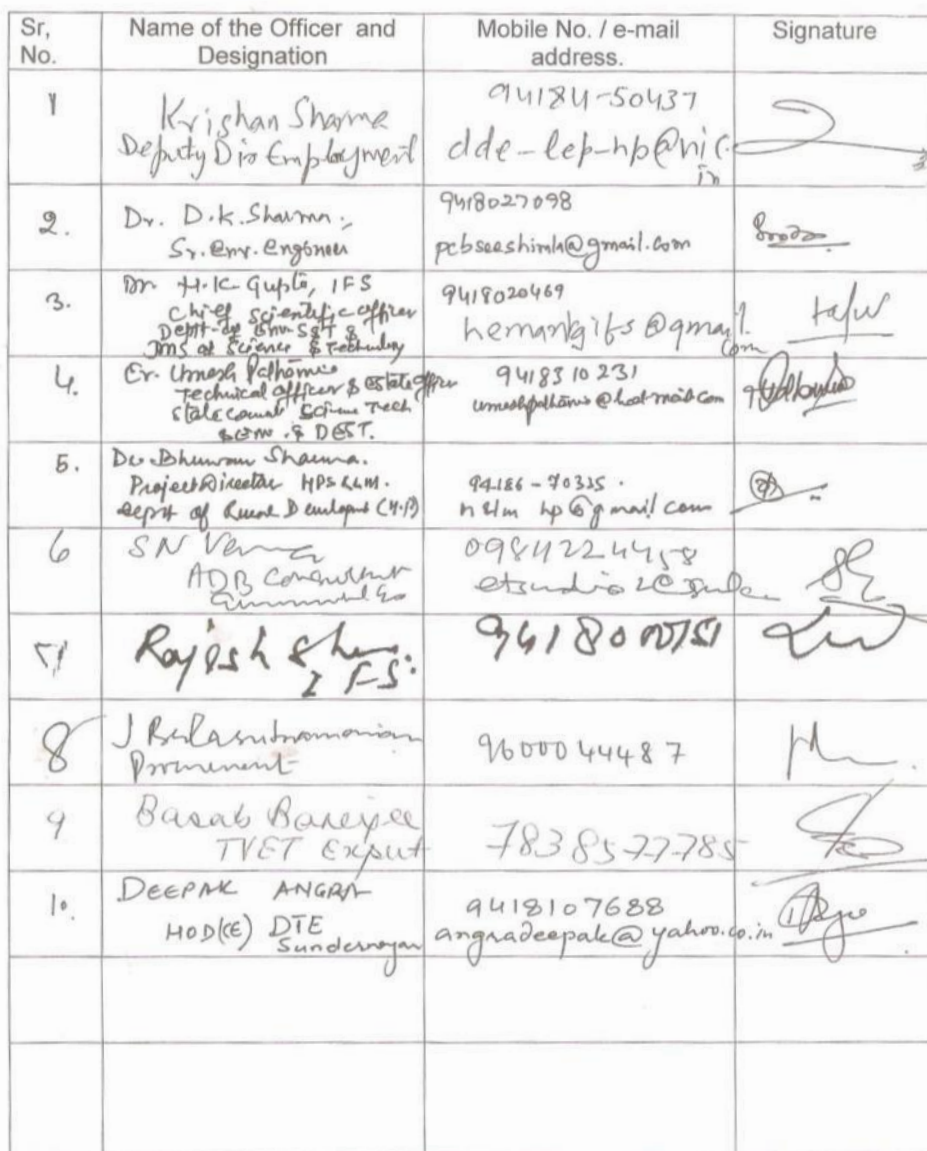 Sr, No.
Name of the Officer and Designation
Mobile No. / e-mail address.
Signature
1
Krishan Sharma
Deputy Dir Employment
94184-50437
dde-lep-hp@nic.
in
2.
Dr. D.K. Sharma
Sr. Env. Engineer
9418027098
pcbseeshimla@gmail.com
3.
Dr. H.K. Gupta, IFS
Chief Scientific Officer
Deptt. of Env. S&T &
Science & Technology
9418020469
@gmail.
com
4.
Er. Umesh
Technical Officer & Estate Officer
State Science Tech
& Env. & DEST.
9418310231
@hotmail.com
5.
Sharma.
Project Director
Deptt of Rural (H.P)
94186-70335.
hp@gmail.com
6
SN Verma
ADB Consultant
7
Rajesh
IFS.
8
J Balasubramanian
9600044487
9
Basab Banerjee
TVET Expert
7838577785
10.
DEEPAK ANGRA
HOD(CE) DTE
Sundernagar
9418107688
angradeepak@yahoo.co.in